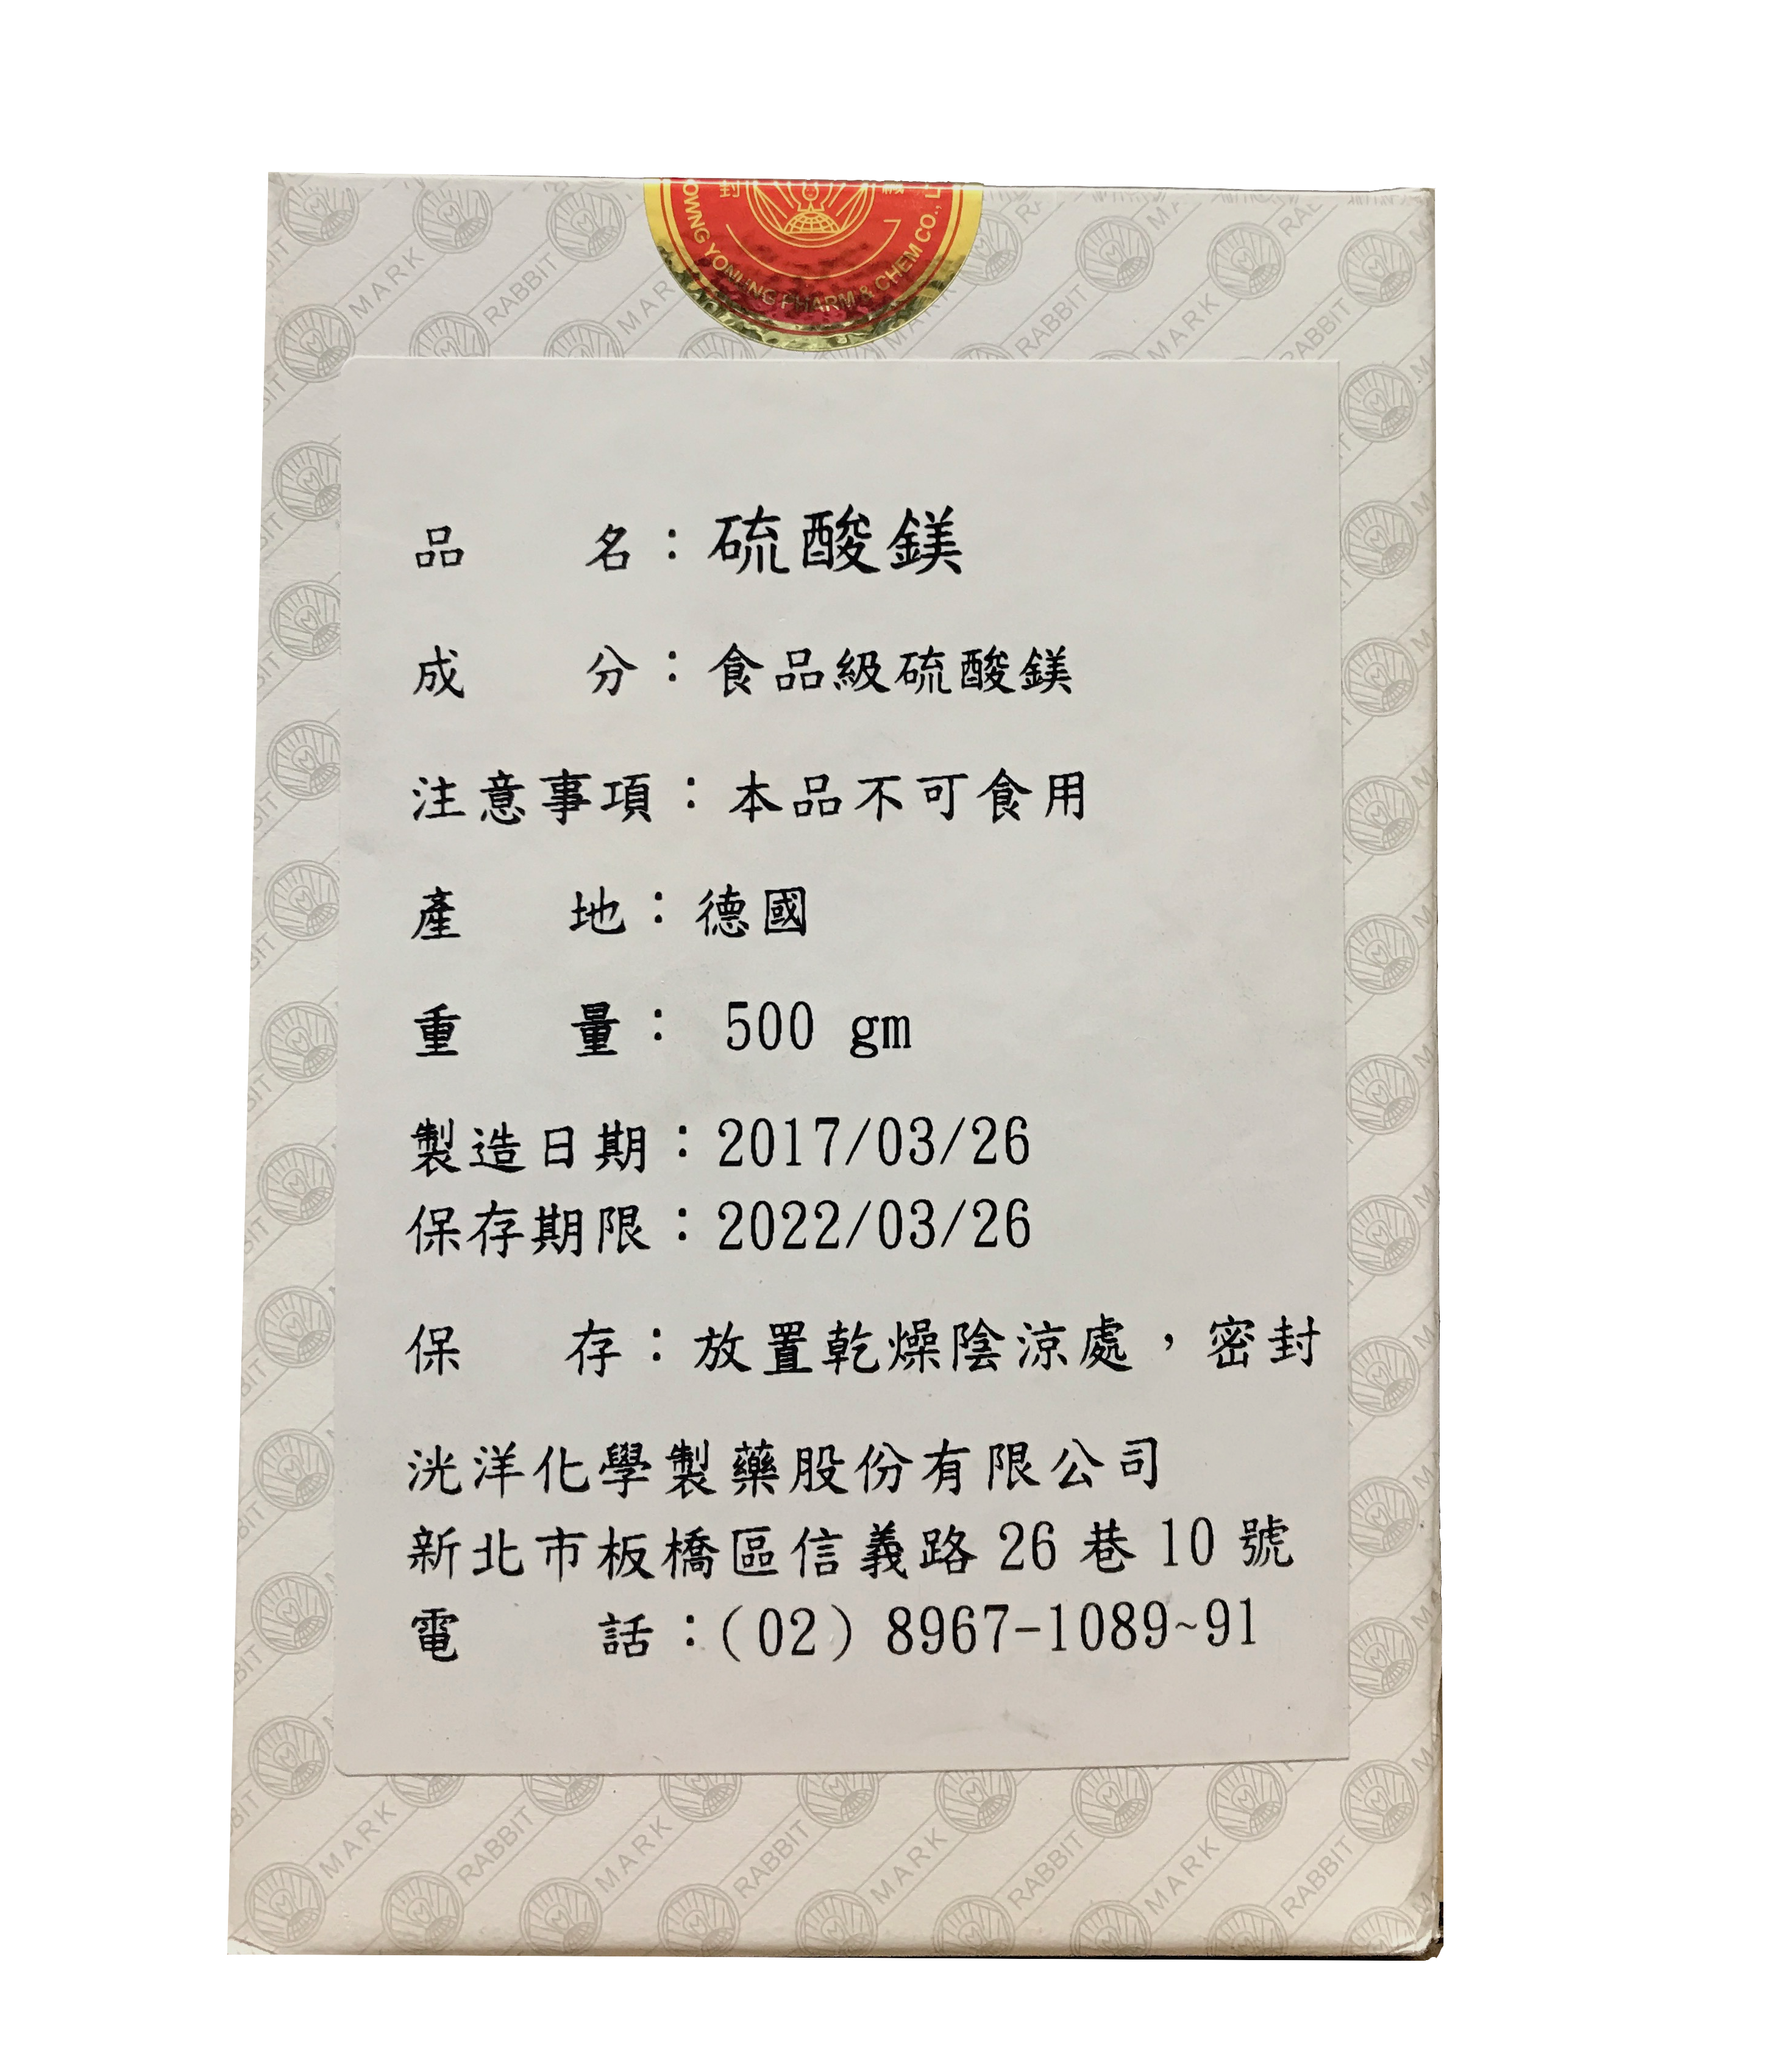 封 緘
OWNG YONUNG PHARM & CHEM CO., L
品名：硫酸鎂
成分：食品級硫酸鎂
注意事項：本品不可食用
產地：德國
重量： 500 gm
製造日期：2017/03/26
保存期限：2022/03/26
保存：放置乾燥陰涼處，密封
洸洋化學製藥股份有限公司
新北市板橋區信義路 26 巷 10 號
電話：(02) 8967-1089~91
RABBIT MARK